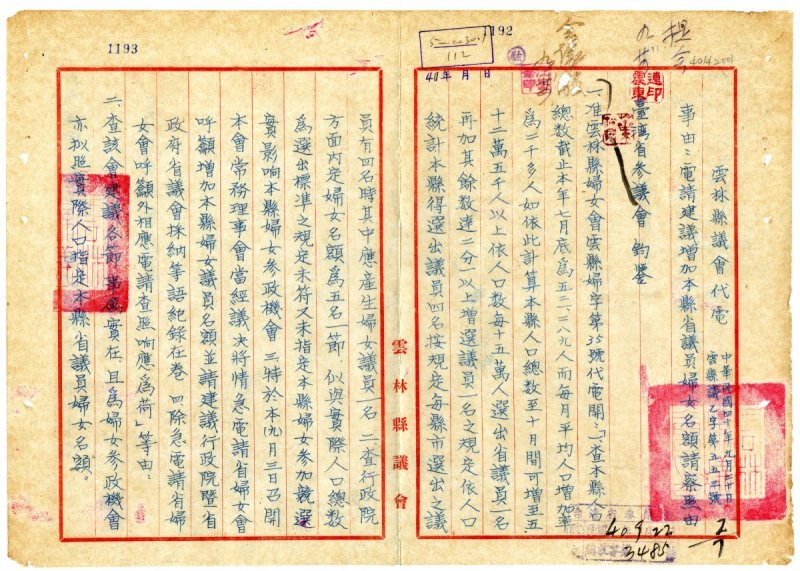 1193
1192
112
40年 月 日
提
會
雲林縣議會代電
中華民國四十年九月二十日
雲縣議乙字第五五三號
事由:電請建議增加本縣省議員婦女名額請察照由
臺灣省參議會 鈞鑒
一、准雲林縣婦女會雲縣婦字第35號代電開:「一、查本縣人口
總數截止本年七月底為五二一二八九人而每月平均人口增加率
為二千多人如依此計算本縣人口總數至十月間可增至五
十二萬五千人以上依人口數每十五萬人選出省議員一名
再加其餘數達二分一以上增選議員一名之規定依人口
統計本縣得選出議員四名按規定每縣市選出之議
員有四名時其中應產生婦女議員一名 二、查行政院
方面內定婦女名額為五名一節,似與實際人口總數
為選出標準之規定未符又未指定本縣婦女參加競選
實影響本縣婦女參政機會 三、特於本(九)月三日召開
本會常務理事會當經議決將情急電請省婦女會
呼籲增加本縣婦女議員名額並請建議行政院暨省
政府省議會採納等語紀錄在卷 四、除急電請省婦
女會呼籲外相應電請查照响應為荷」等由:
二、查該會建議各節,事屬實在,且為婦女參政機會
亦擬照實際人口指定本縣省議員婦女名額。
雲林縣議會
40.9.22
3485